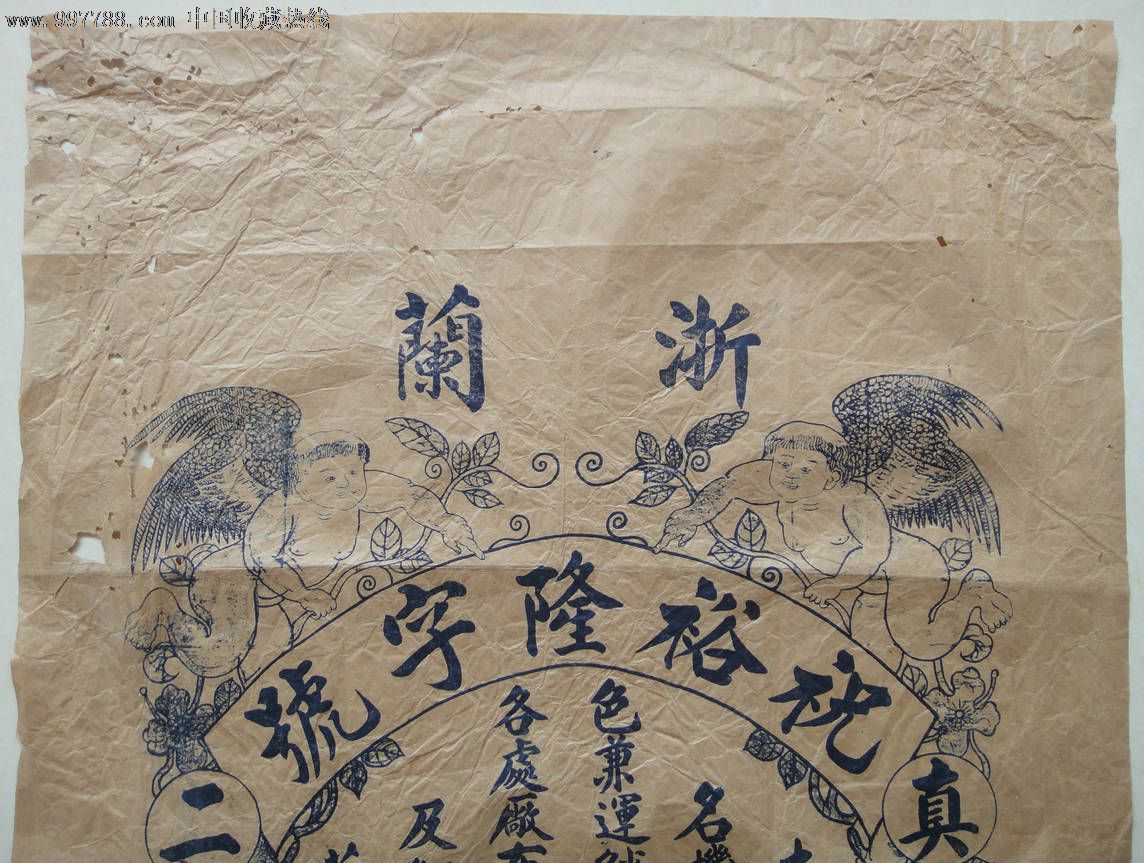 www.997788.com 中国收藏热线
浙蘭
祝裕隆字號
真
二
名
色兼運
各處廠
及